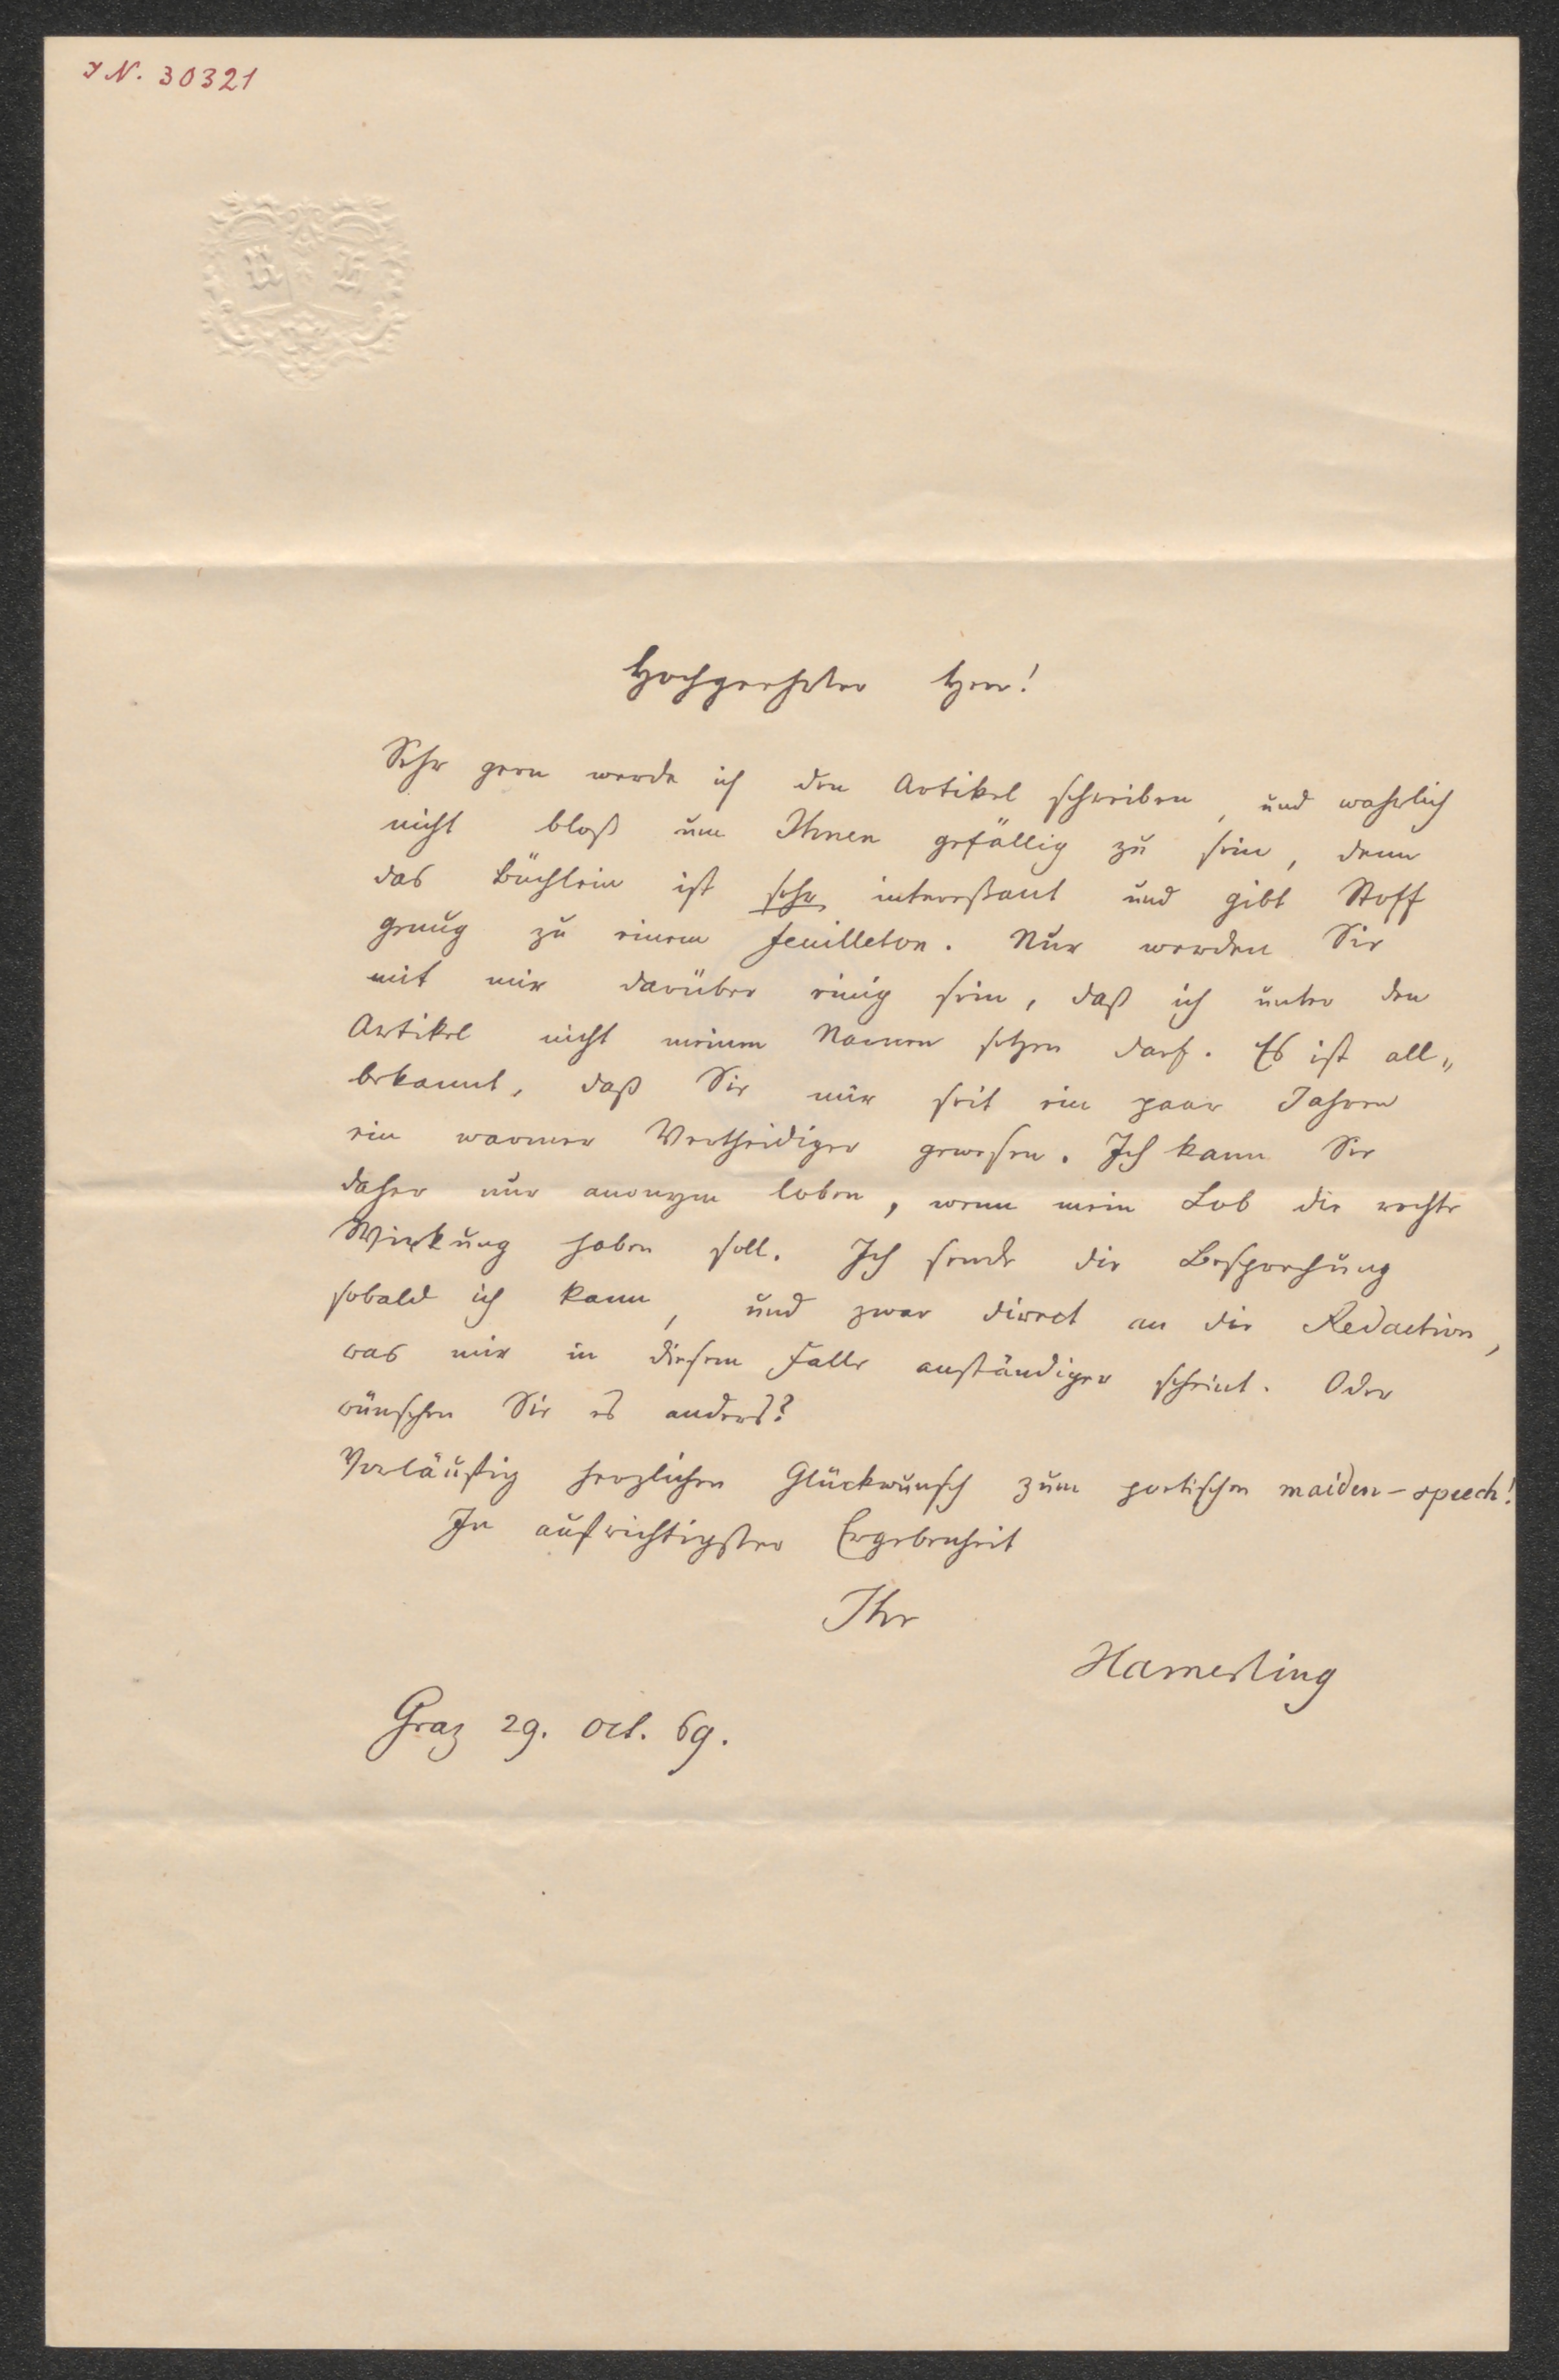 I N. 30321
R H
Hochgeehrter Herr!
Sehr gern werde ich den Artikel schreiben, und wahrlich
nicht bloß um Ihnen gefällig zu sein, denn
das Büchlein ist sehr interessant und gibt Stoff
genug zu einem Feuilleton. Nur werden Sie
mit mir darüber einig sein, daß ich unter den
Artikel nicht meinen Namen setzen darf. Es ist all„
bekannt, daß Sie mir seit ein paar Jahren
ein warmer Vertheidiger gewesen. Ich kann Sie
daher nur anonym loben, wenn mein Lob die rechte
Wirkung haben soll. Ich sende die Besprechung
sobald ich kann, und zwar direct an die Redaction,
was mir in diesem Falle anständiger scheint. Oder
wünschen Sie es anders?
Vorläufig herzlichen Glückwunsch zum poetischen maiden-speech!
In aufrichtigster Ergebenheit
Ihr
Hamerling
Graz 29. Oct. 69.